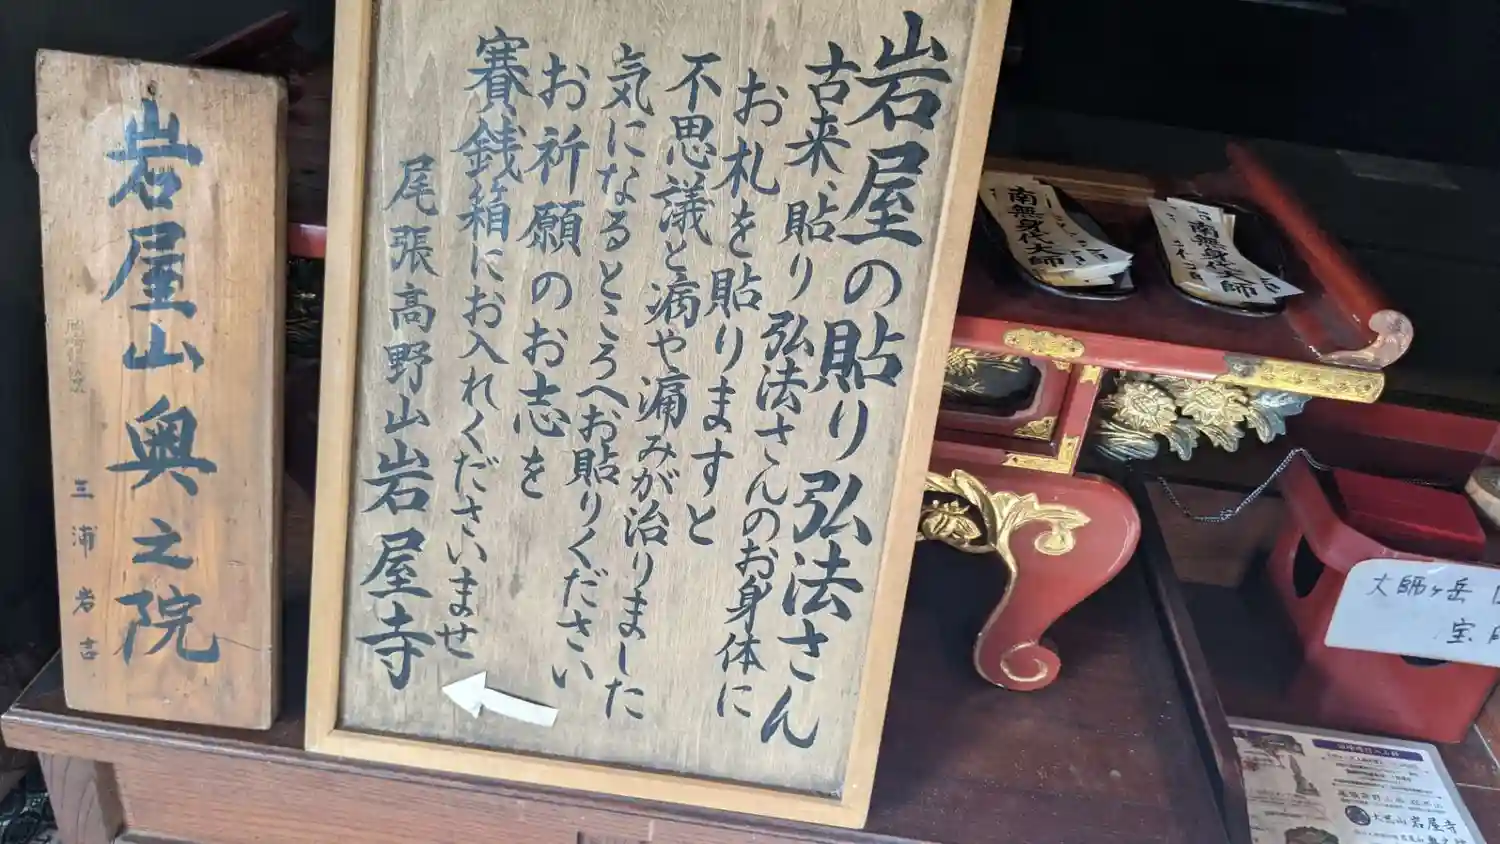 岩屋の貼り弘法さん
古来、貼り弘法さんのお身体に
お札を貼りますと
不思議と病や痛みが治りました
気になるところへお貼りください
お祈願のお志を
賽銭箱にお入れくださいませ
尾張高野山岩屋寺
岩屋山奥之院
三浦岩吉
南無身代大師
南無身代大師
大師ヶ岳
宝
大黒山 岩屋寺